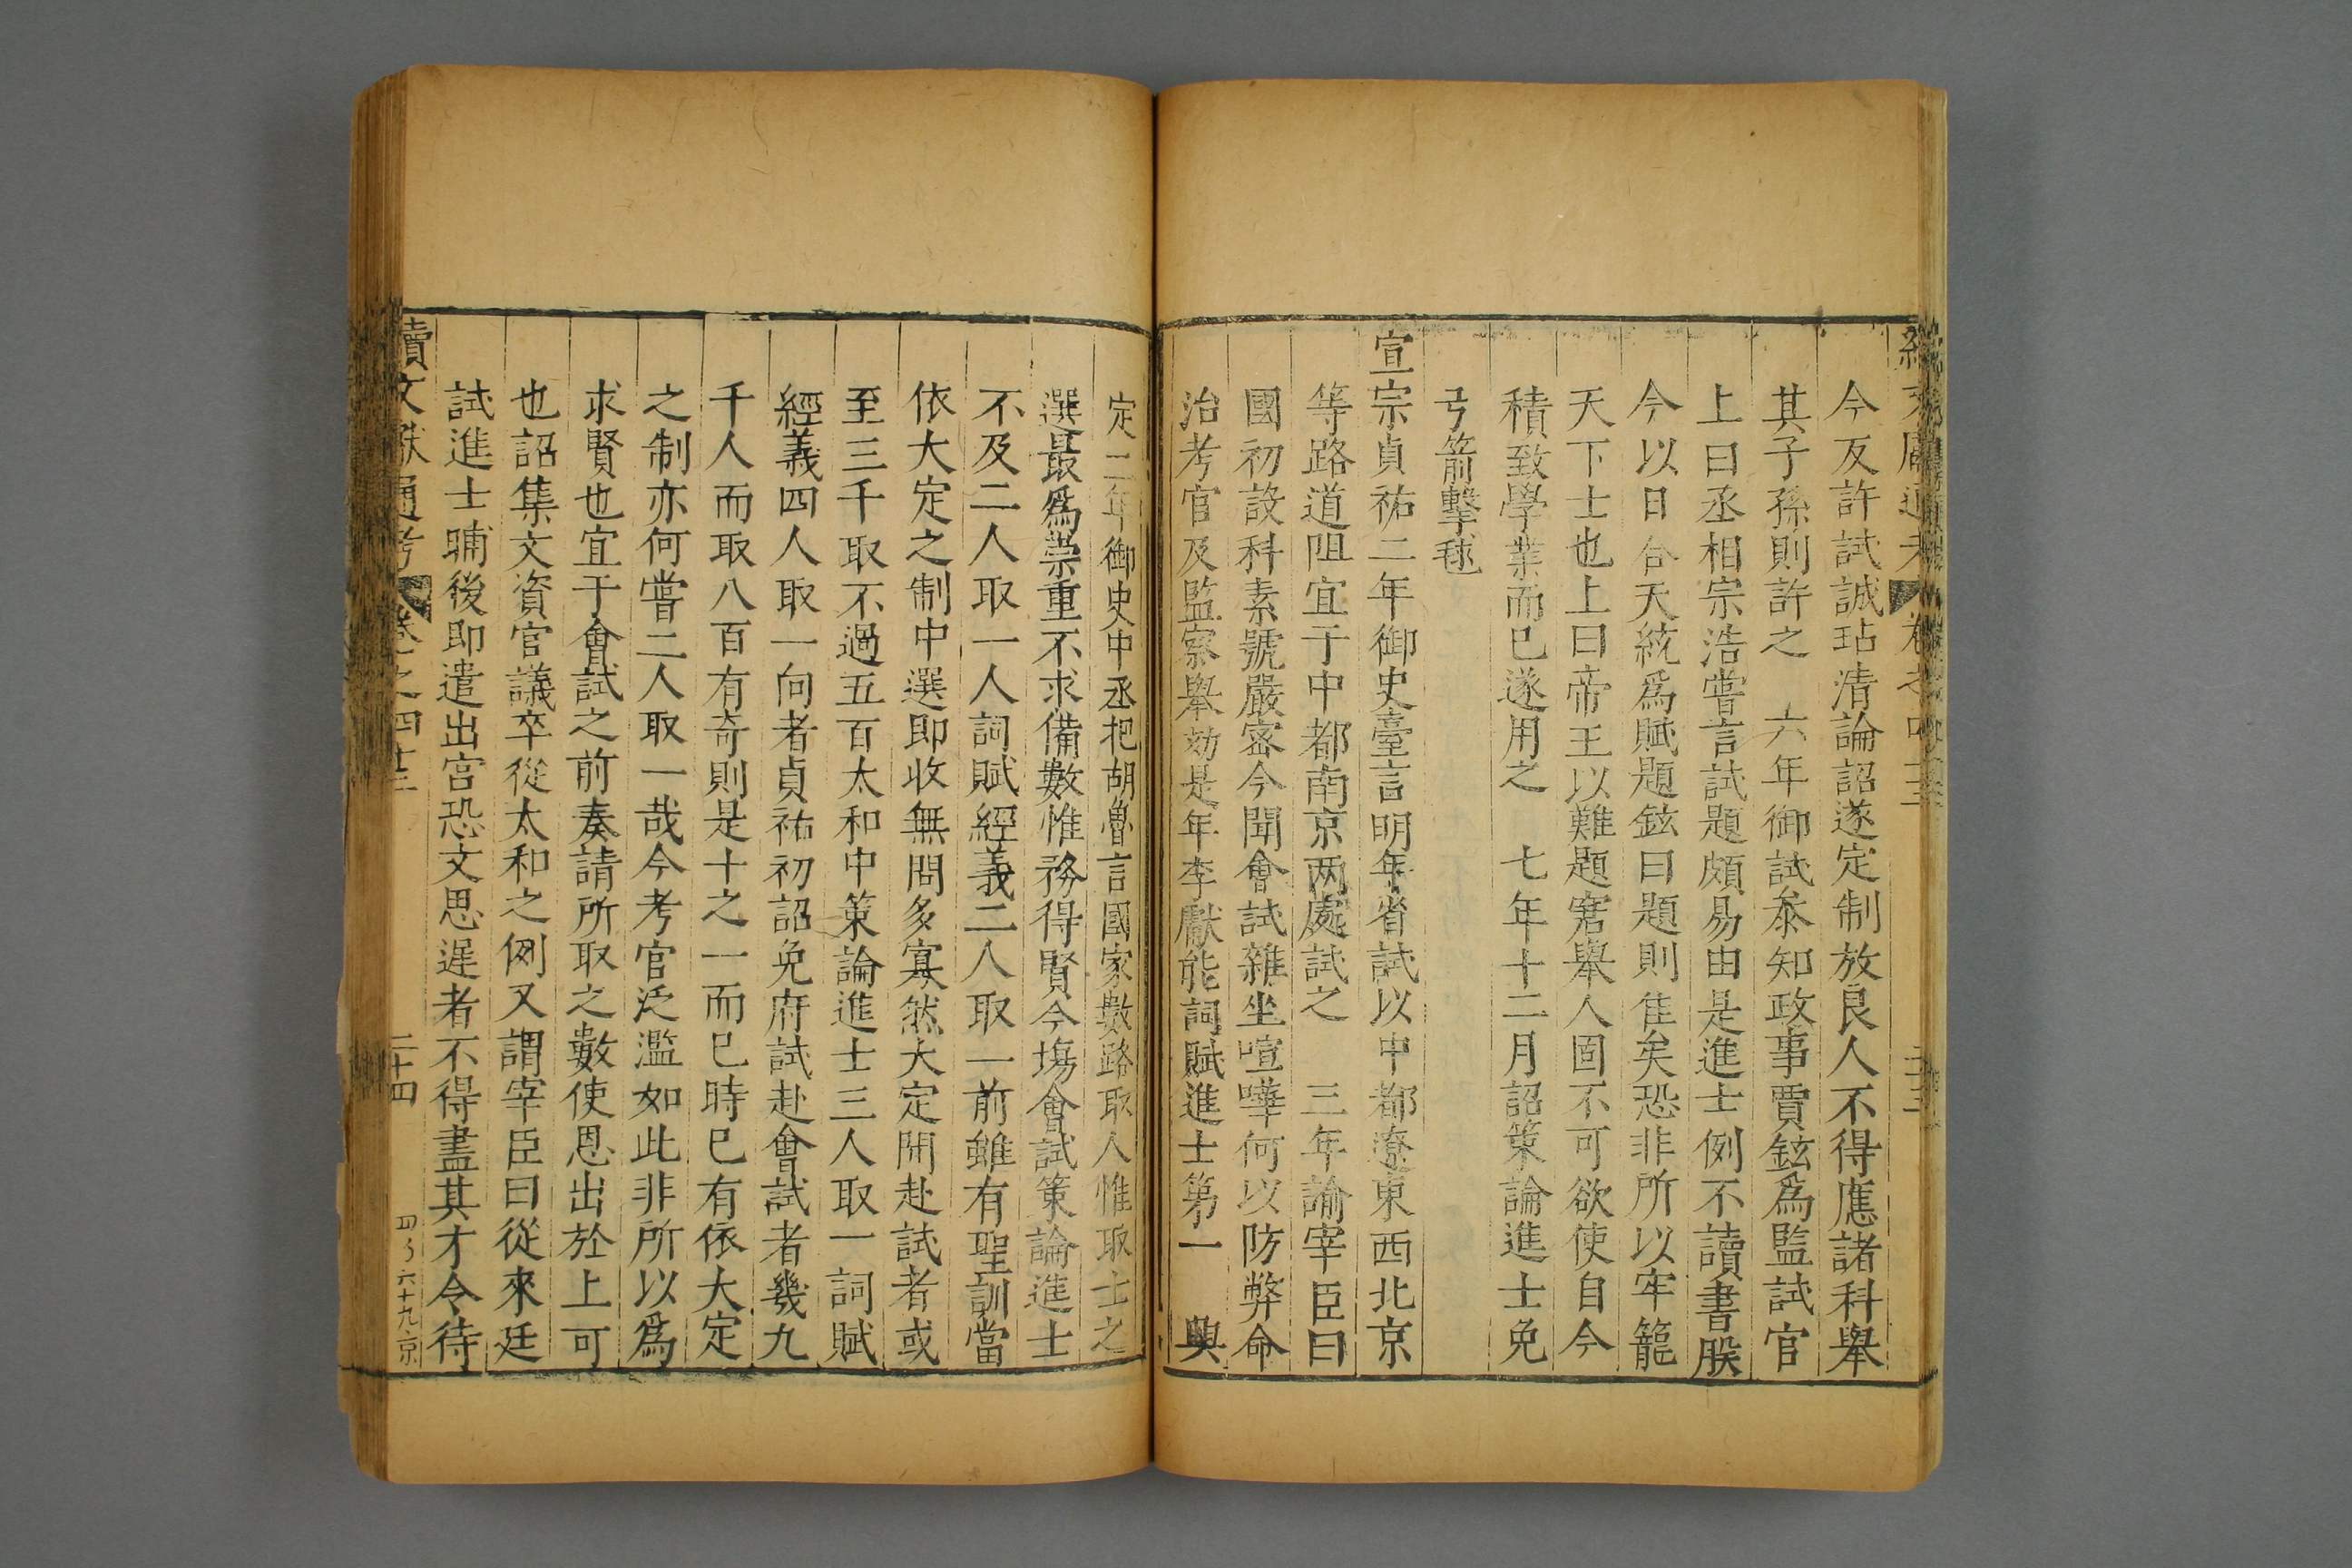 今反許試誠玷清論詔遂定制放良人不得應諸科舉
其子孫則許之 六年御試叅知政事賈鉉爲監試官
上曰丞相宗浩嘗言試題頗易由是進士例不讀書朕
今以日合天統爲賦題鉉曰題則佳矣恐非所以牢籠
天下士也上曰帝王以難題窘舉人固不可欲使自今
積致學業而已遂用之 七年十二月詔策論進士免
弓箭擊毬
宣宗貞祐二年御史臺言明年省試以中都遼東西北京
等路道阻宜于中都南京两處試之 三年諭宰臣曰
國初設科素號嚴密今聞會試雜坐喧嘩何以防弊命
治考官及監察舉劾是年李獻能詞賦進士第一 興
定二年御史中丞把胡魯言國家數路取人惟取士之
選最爲崇重不求備數惟務得賢今塲會試策論進士
不及二人取一人詞賦經義二人取一前雖有聖訓當
依大定之制中選即收無問多寡然大定開赴試者或
至三千取不過五百太和中策論進士三人取一詞賦
經義四人取一向者貞祐初詔免府試赴會試者幾九
千人而取八百有奇則是十之一而已時已有依大定
之制亦何嘗二人取一哉今考官泛濫如此非所以爲
求賢也宜于會試之前奏請所取之數使恩出於上可
也詔集文資官議卒從太和之例又謂宰臣曰從來廷
試進士晡後即遣出宮恐文思遲者不得盡其才令待
續文獻通考 卷之四十三 二十四 六十九 京